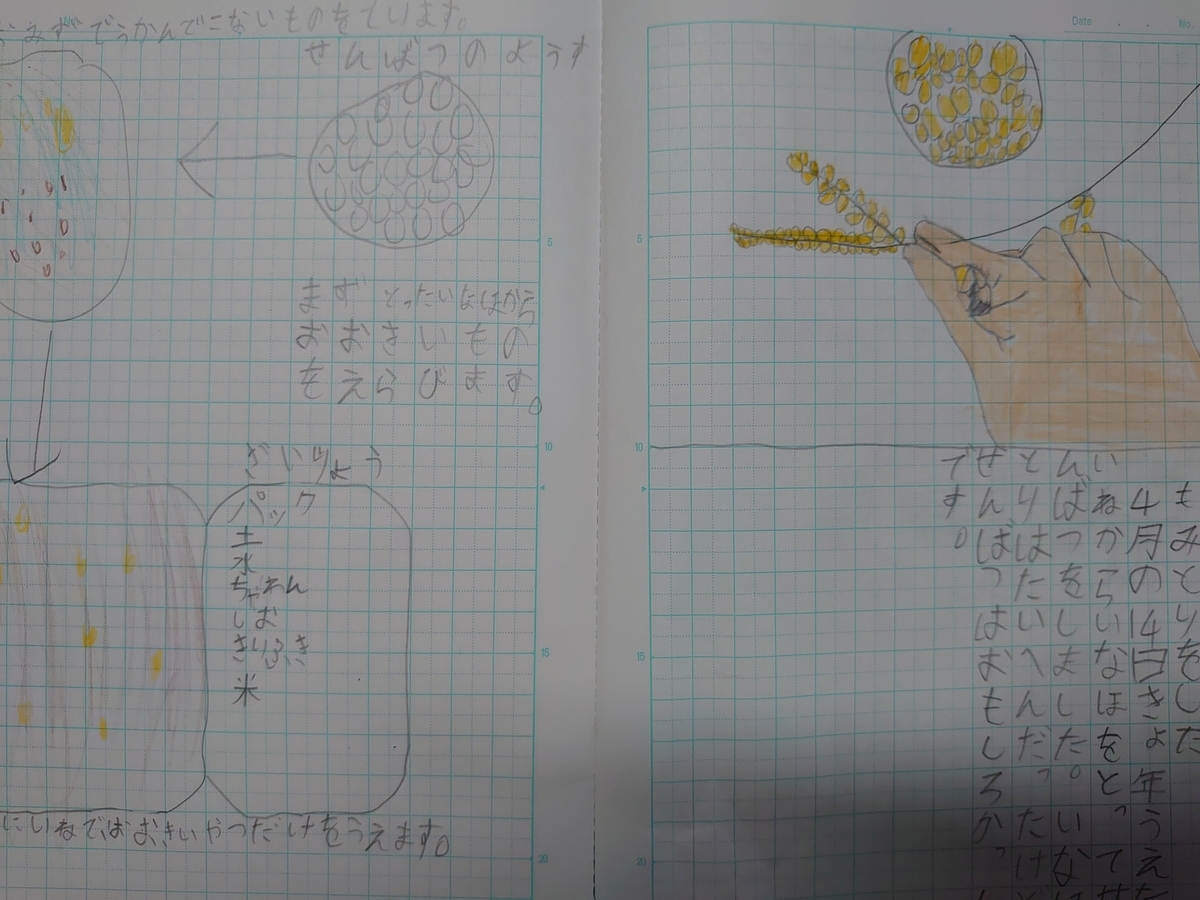 みずでうかんでこないものをています。
せんばつのようす
まず とったいねはほから
おおきいもの
をえらびます。
ざいりょう
パック
土
水
ちゃわん
しお
きりふき
米
にいねではおおきいやつだけをうえます。
もみとりをした
4月の14日きょ年うえた
いねからいなほをとってせ
んばつをしました。いなほ
とりはたいへんだったけど
せんばつはおもしろかっ
です。